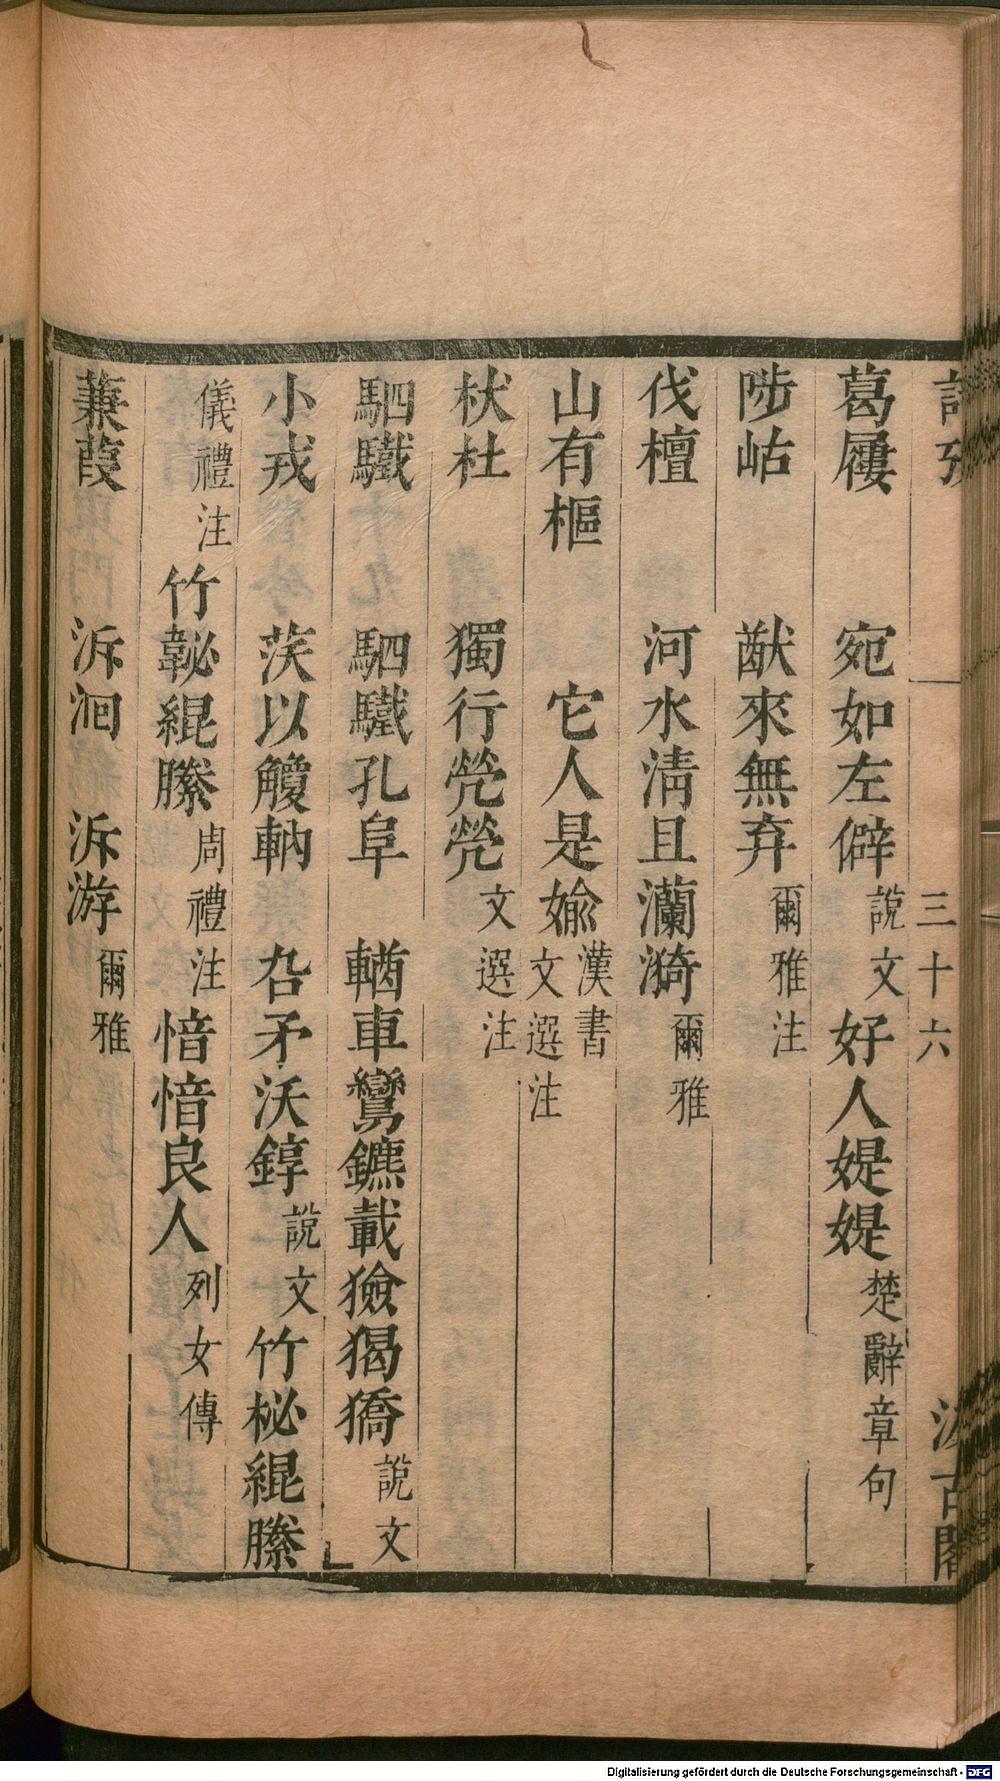 詩攷 三十六 汲古閣
葛屨 宛如左僻說文好人媞媞楚辭章句
陟岵 猷來無弃爾雅注
伐檀 河水清且瀾漪爾雅
山有樞 它人是媮漢書文選注
杕杜 獨行煢煢文選注
駟驖 駟驖孔阜 輶車鸞鑣載獫猲獢說文
小戎 茷以觼軜 厹矛沃錞說文竹柲緄縢
儀禮注竹䪐緄縢周禮注愔愔良人列女傳
蒹葭 泝洄 泝游爾雅
Digitalisierung gefördert durch die Deutsche Forschungsgemeinschaft - DFG